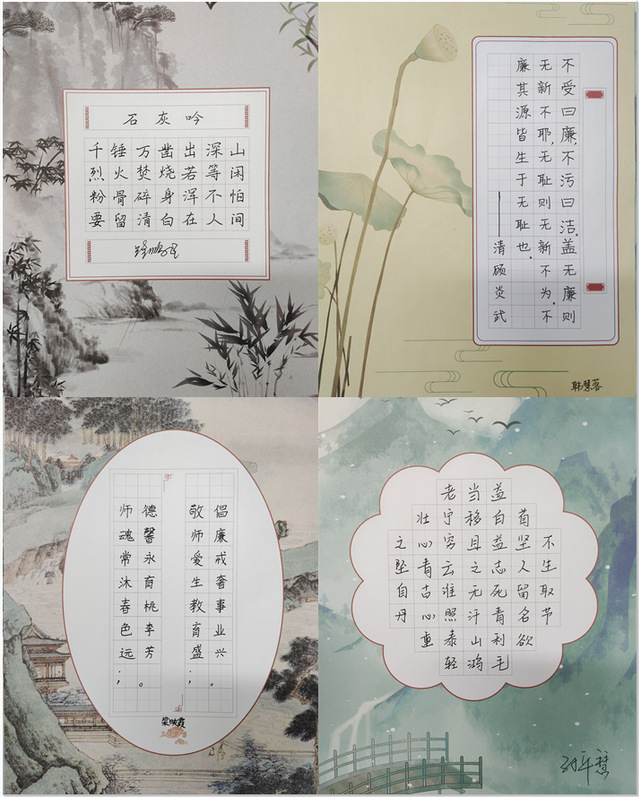 石灰吟
千锤万凿出深山
烈火焚烧若等闲
粉骨碎身浑不怕
要留清白在人间
不受曰廉,不污曰洁,盖无廉则
无新不耶,无耻则无新不为,不
廉其源皆生于无耻也。
——清顾炎武
韩慧蓉
师魂常沐春色远;
德馨永育桃李芳。
敬师爱生教育盛;
倡廉戒奢事业兴。
梁映霞
老当益
壮宁移白首
之心穷且益坚不
坠青云之志人生
自古谁无死留取
丹心照汗青名节
重泰山利欲
轻鸿毛